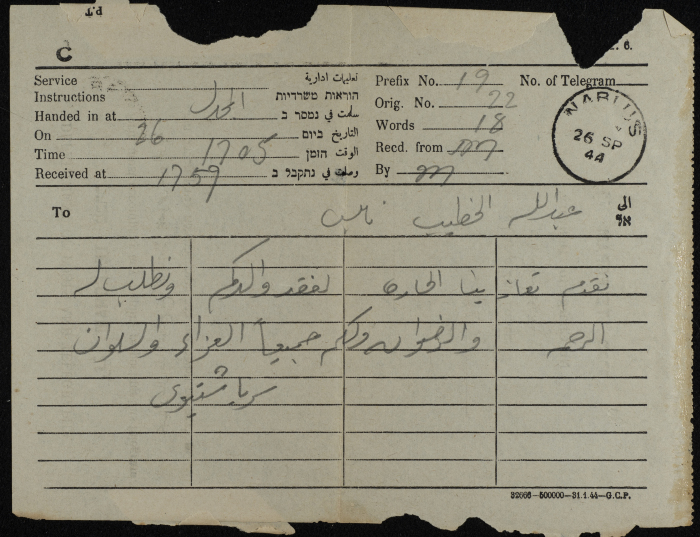 C
Service تعليمات ادارية
Instructions הוראות משרדיות
Handed in at المجدل سلمت في נמסר ב
On 26 التاريخ ביום
Time 1705 الوقت הזמן
Received at 1759 وصلت في נתקבל ב
Prefix No. 19 No. of Telegram
Orig. No. 22
Words 18
Recd. from m
By m
NABLUS
26 SP
44
To عبدالله الخطيب نابلس الى אל
نقدم تعازينا الحارة لفقد والدكم ونطلب له
الرحمه والرضوان ولكم جميعاً العزاء والسلوان
شتيوي
32666—500000—31.1.44—G.C.P.